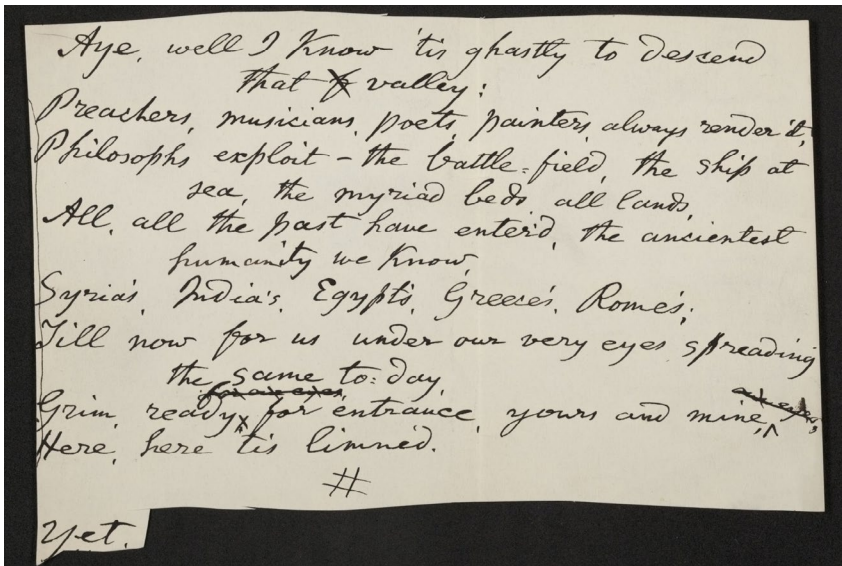 Aye, well I know 'tis ghastly to descend
that valley:
Preachers, musicians, poets, painters, always render it,
Philosophs exploit – the battle-field, the ship at
sea, the myriad beds, all lands,
All, all the past have enter'd, the ancientest
humanity we know,
Syria's, India's, Egypt's, Greece's, Rome's;
Till now for us under our very eyes spreading
the same to-day,
Grim, ready, for entrance, yours and mine,
Here, here 'tis limn'd.
#
Yet.